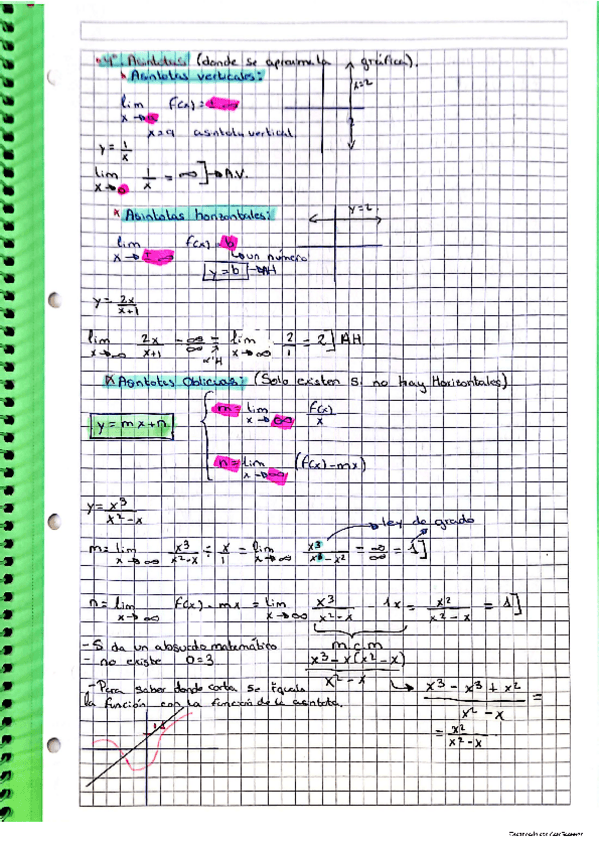 4º Asíntotas (donde se aproxima la gráfica).
Asíntotas verticales:
x=2
lim f(x) = ± ∞
x→a
x=a asíntota vertical.
y = 1/x
lim 1/x = ∞ ]→A.V.
x→0
* Asíntotas horizontales:
y=2.
lim f(x) = b
x→± ∞
↳ un número
y = b → AH
y = 2x/x+1
lim 2x/x+1 = ∞/∞ = lim 2/1 = 2] AH.
x→∞ L'H x→∞
* Asíntotas Oblicuas: (Solo existen si no hay Horizontales)
y = mx+n.
m = lim f(x)/x
x→∞
n = lim (f(x) - mx)
x→∞
y = x³/x²-x
ley de grado
m = lim x³/x²-x ÷ x/1 = lim x³/x³-x² = ∞/∞ = 1]
x→∞ x→∞
n = lim f(x) - mx = lim x³/x²-x - 1x = x²/x²-x = 1]
x→∞ x→∞
- Si da un absurdo matemático
- no existe 0=3
m.c.m
x³-x(x²-x)/x²-x → x³-x³+x²/x²-x =
- Para saber donde corta se iguala
la función con la función de la asíntota.
= x²/x²-x